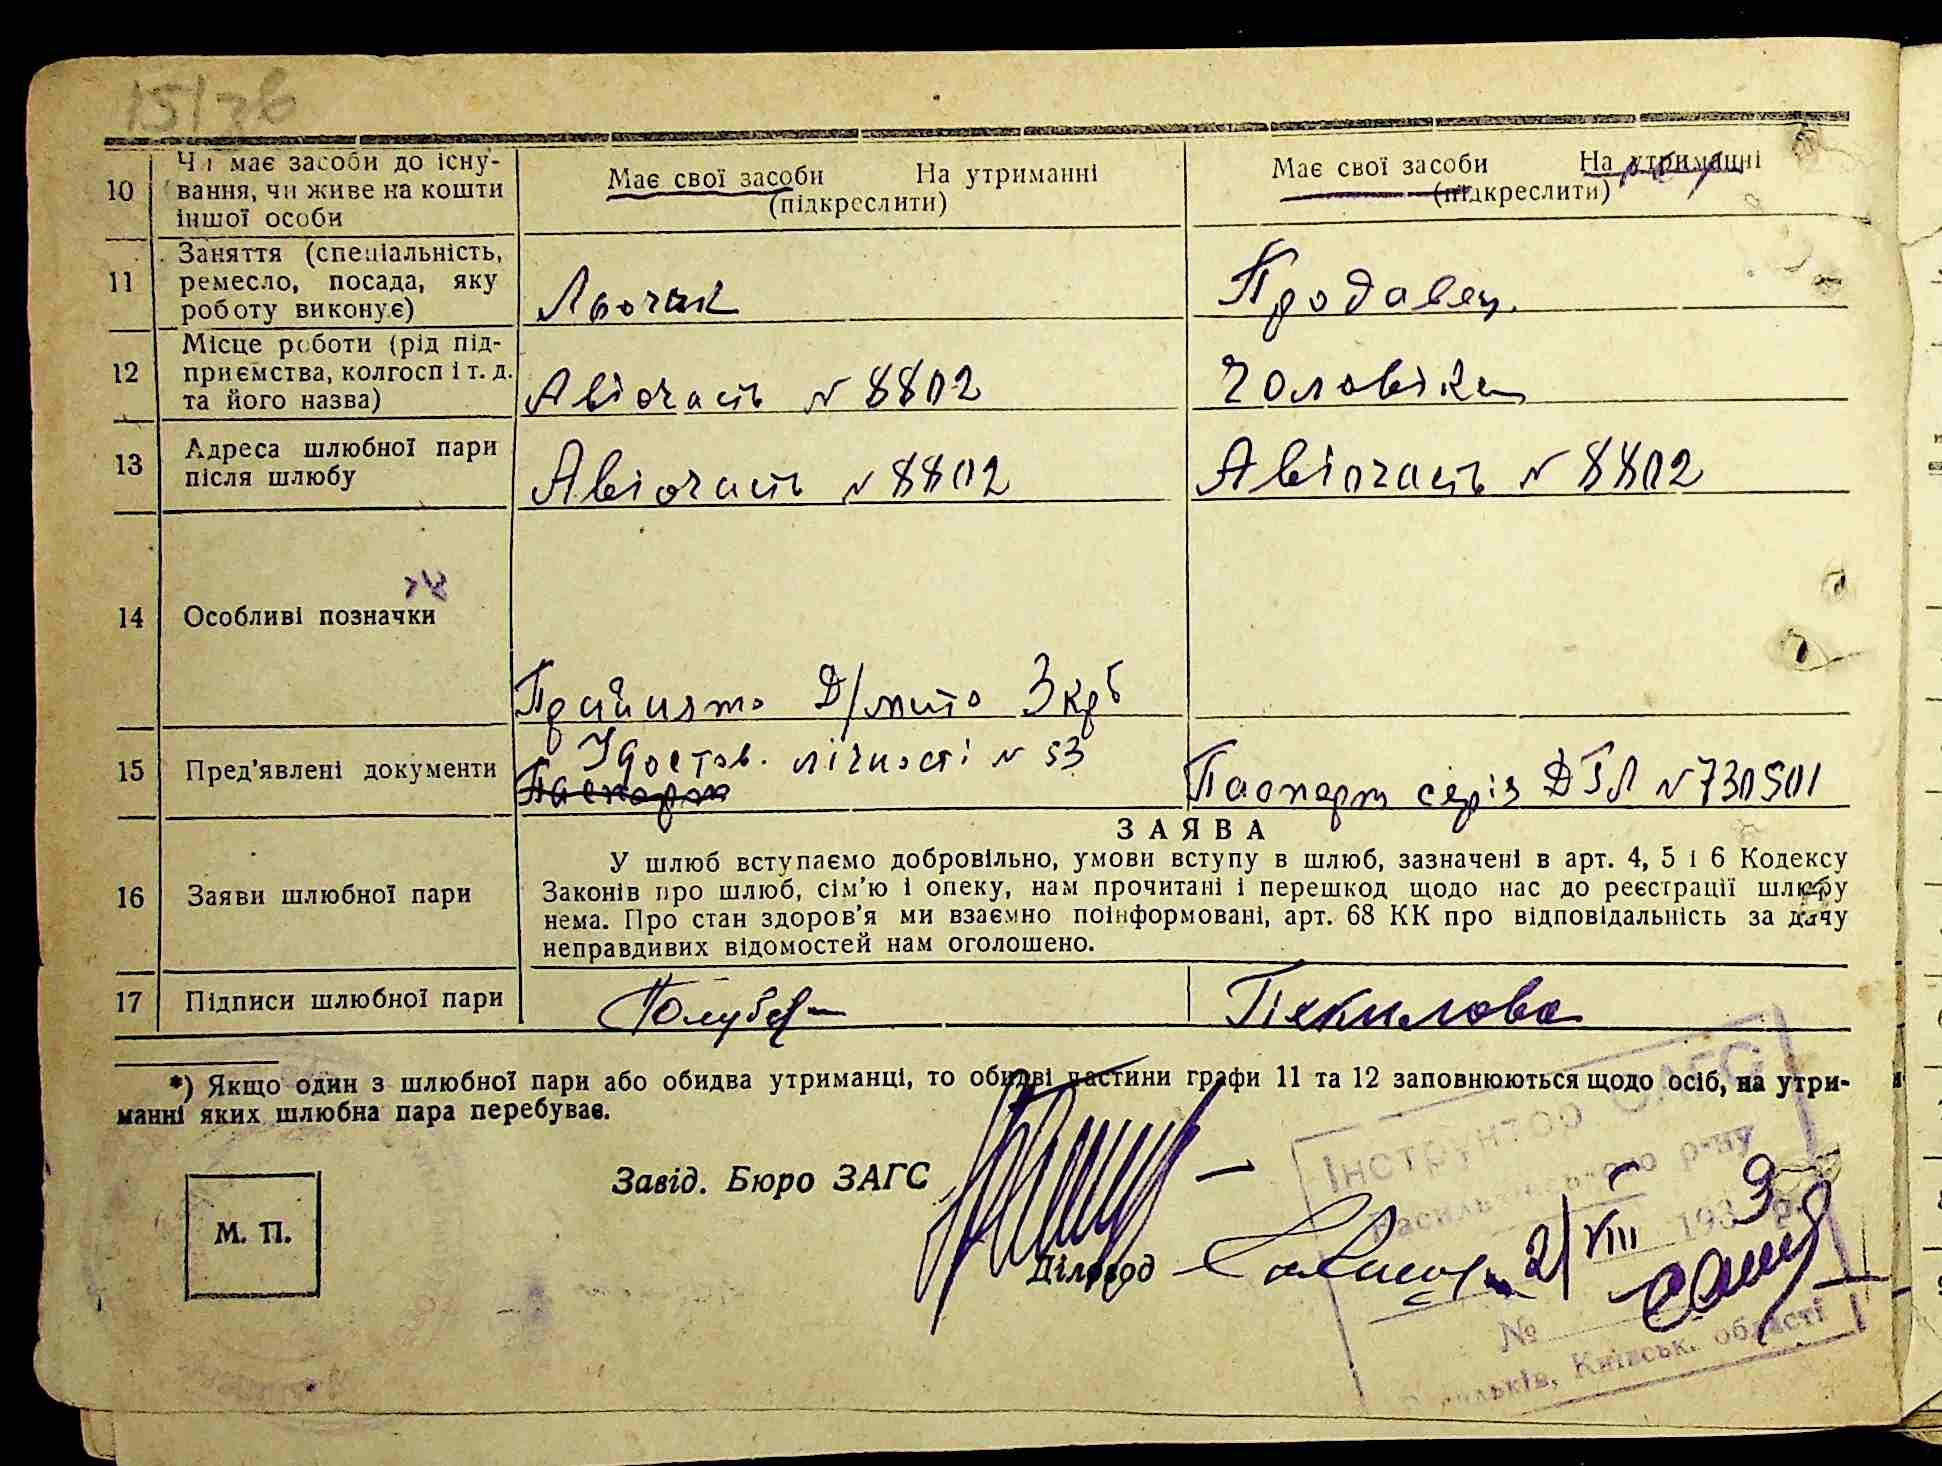 15/76
10 Чи має засоби до існу-
вання, чи живе на кошти
іншої особи
Має свої засоби На утриманні
(підкреслити)
Має свої засоби На утриманні
(підкреслити)
11 Заняття (спеціальність,
ремесло, посада, яку
роботу виконує)
Льочик
Продавец
12 Місце роботи (рід під-
приємства, колгосп і т. д.
та його назва)
Авіочасть № 8802
Чоловіка
13 Адреса шлюбної пари
після шлюбу
Авіочасть № 8802
Авіочасть № 8802
14 Особливі позначки
Прийнято Д/мито 3 крб
15 Пред'явлені документи
Удостов. лічності № 53
Паспорт
Паспорт серія ДГЛ № 730501
16 Заяви шлюбної пари
ЗАЯВА
У шлюб вступаємо добровільно, умови вступу в шлюб, зазначені в арт. 4, 5 і 6 Кодексу
Законів про шлюб, сім'ю і опеку, нам прочитані і перешкод щодо нас до реєстрації шлюбу
нема. Про стан здоров'я ми взаємно поінформовані, арт. 68 КК про відповідальність за дачу
неправдивих відомостей нам оголошено.
17 Підписи шлюбної пари
*) Якщо один з шлюбної пари або обидва утриманці, то обидві частини графи 11 та 12 заповнюються щодо осіб, на утри-
манні яких шлюбна пара перебуває.
Завід. Бюро ЗАГС
М. П.
Діловод
Інструктор ОАГС
Васильківського р-ну
2/VIII 1939 р.
№
Васильків, Київськ. області